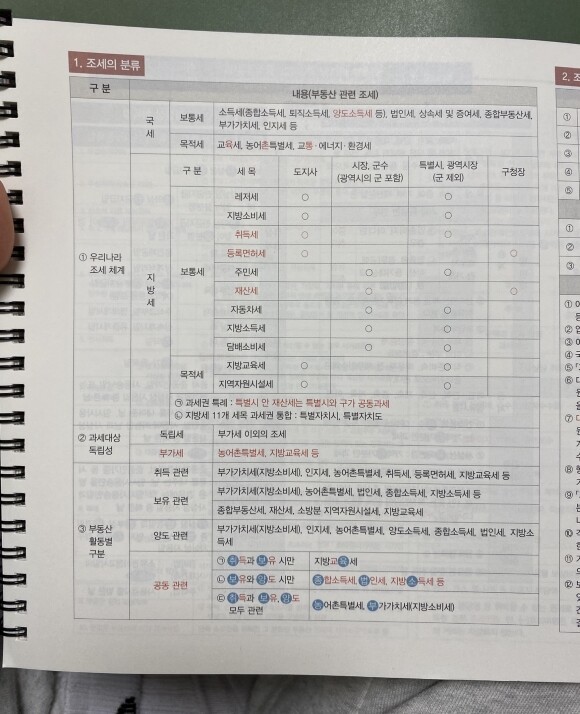 1. 조세의 분류
구 분
내용(부동산 관련 조세)
① 우리나라
조세 체계
국
세
보통세
소득세(종합소득세, 퇴직소득세, 양도소득세 등), 법인세, 상속세 및 증여세, 종합부동산세,
부가가치세, 인지세 등
목적세
교육세, 농어촌특별세, 교통·에너지·환경세
지
방
세
구 분
세 목
도지사
시장, 군수
(광역시의 군 포함)
특별시, 광역시장
(군 제외)
구청장
보통세
레저세 ○ ○
지방소비세 ○ ○
취득세 ○ ○
등록면허세 ○ ○
주민세 ○ ○
재산세 ○ ○
자동차세 ○ ○
지방소득세 ○ ○
담배소비세 ○ ○
목적세
지방교육세 ○ ○
지역자원시설세 ○ ○
㉠ 과세권 특례 : 특별시 안 재산세는 특별시와 구가 공동과세
㉡ 지방세 11개 세목 과세권 통합 : 특별자치시, 특별자치도
② 과세대상
독립성
독립세
부가세 이외의 조세
부가세
농어촌특별세, 지방교육세 등
③ 부동산
활동별
구분
취득 관련
부가가치세(지방소비세), 인지세, 농어촌특별세, 취득세, 등록면허세, 지방교육세 등
보유 관련
부가가치세(지방소비세), 농어촌특별세, 법인세, 종합소득세, 지방소득세 등
종합부동산세, 재산세, 소방분 지역자원시설세, 지방교육세
양도 관련
부가가치세(지방소비세), 인지세, 농어촌특별세, 양도소득세, 종합소득세, 법인세, 지방소
득세
공동 관련
㉠ 취득과 보유 시만
지방교육세
㉡ 보유와 양도 시만
종합소득세, 법인세, 지방소득세 등
㉢ 취득과 보유, 양도
모두 관련
농어촌특별세, 부가가치세(지방소비세)
2. 조
①
②
③
④
⑤
①
②
③
①
②
③
④
⑤
⑥
⑦
⑧
⑨
⑩
⑪
⑫